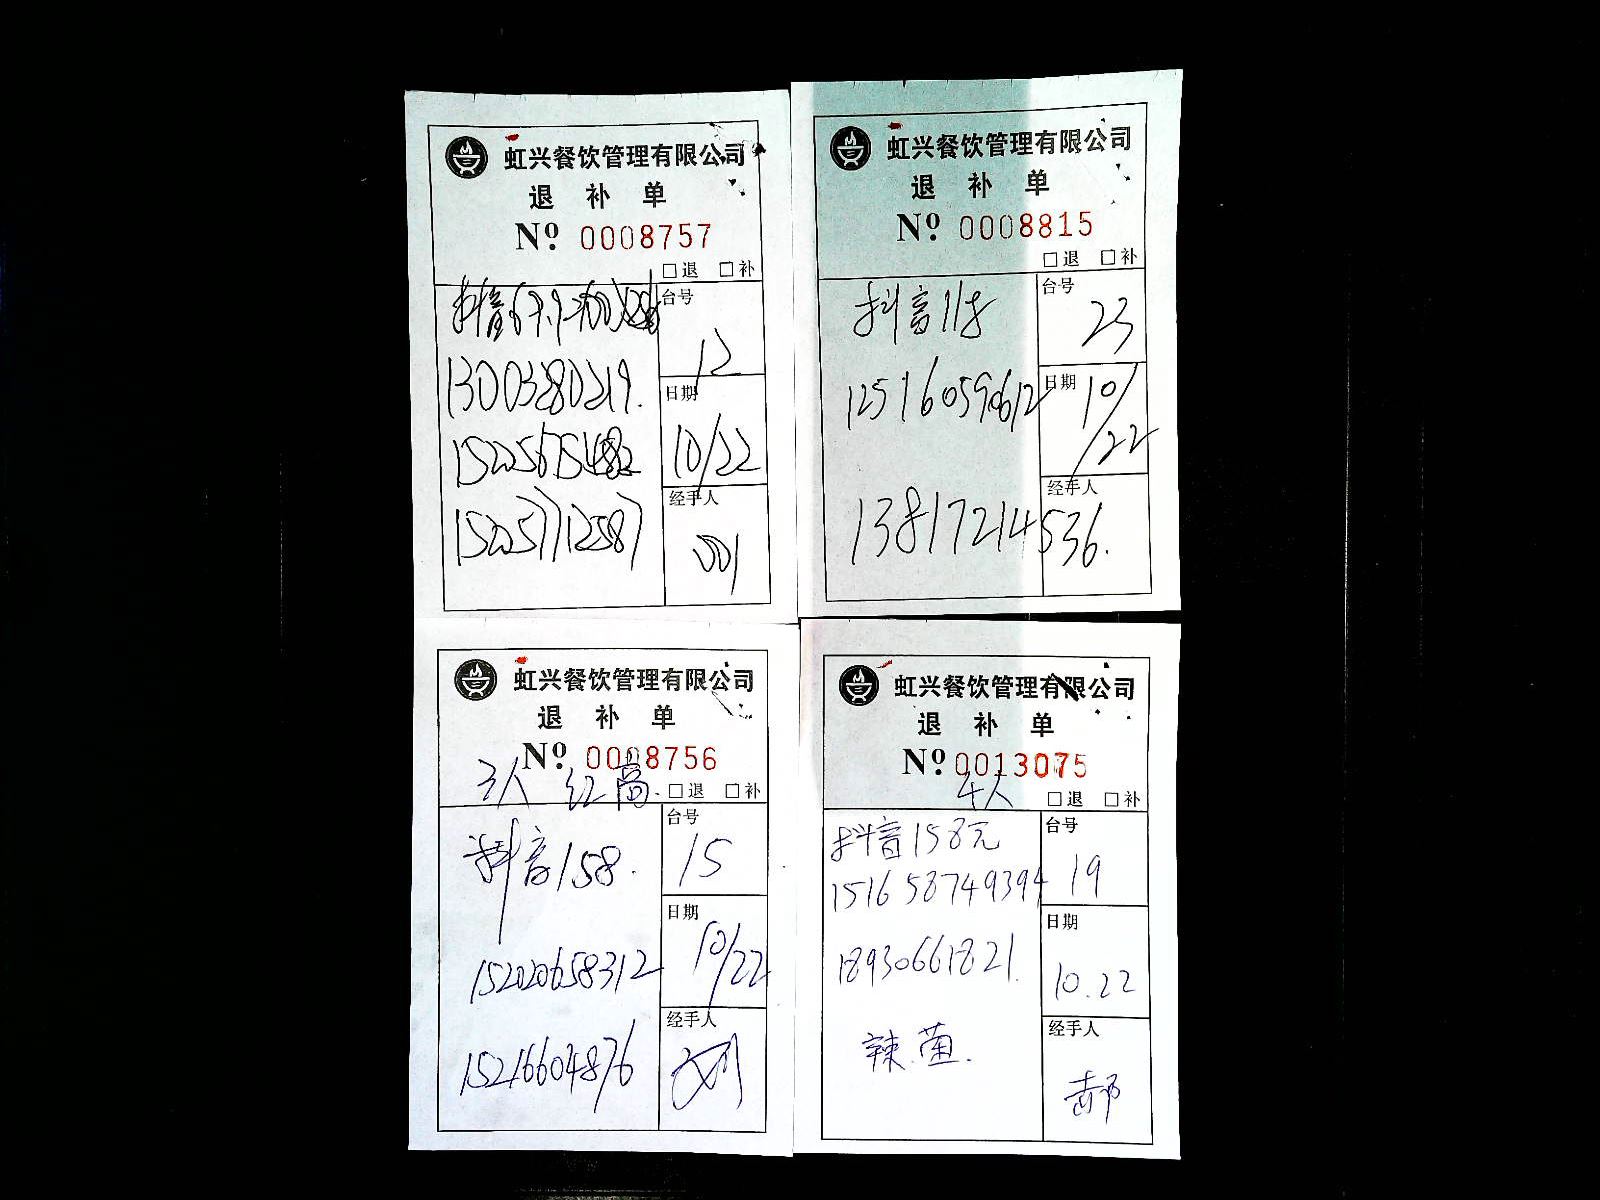 虹兴餐饮管理有限公司
退 补 单
Nº 0008757
□退 □补
抖音
13003280219.
台号
12
日期
10/22
152257712587
经手人
001
虹兴餐饮管理有限公司
退 补 单
Nº 0008815
□退 □补
抖音
台号
23
125160590612
日期
10/22
13817214536.
经手人
虹兴餐饮管理有限公司
退 补 单
Nº 0008756
3人 红高.
□退 □补
抖音158.
台号
15
152020658312
日期
10/22
15216604876
经手人
刘
虹兴餐饮管理有限公司
退 补 单
Nº 0013075
4人
□退 □补
抖音158元
151658749394
台号
19
18930661821.
日期
10.22
辣.菌.
经手人
郝